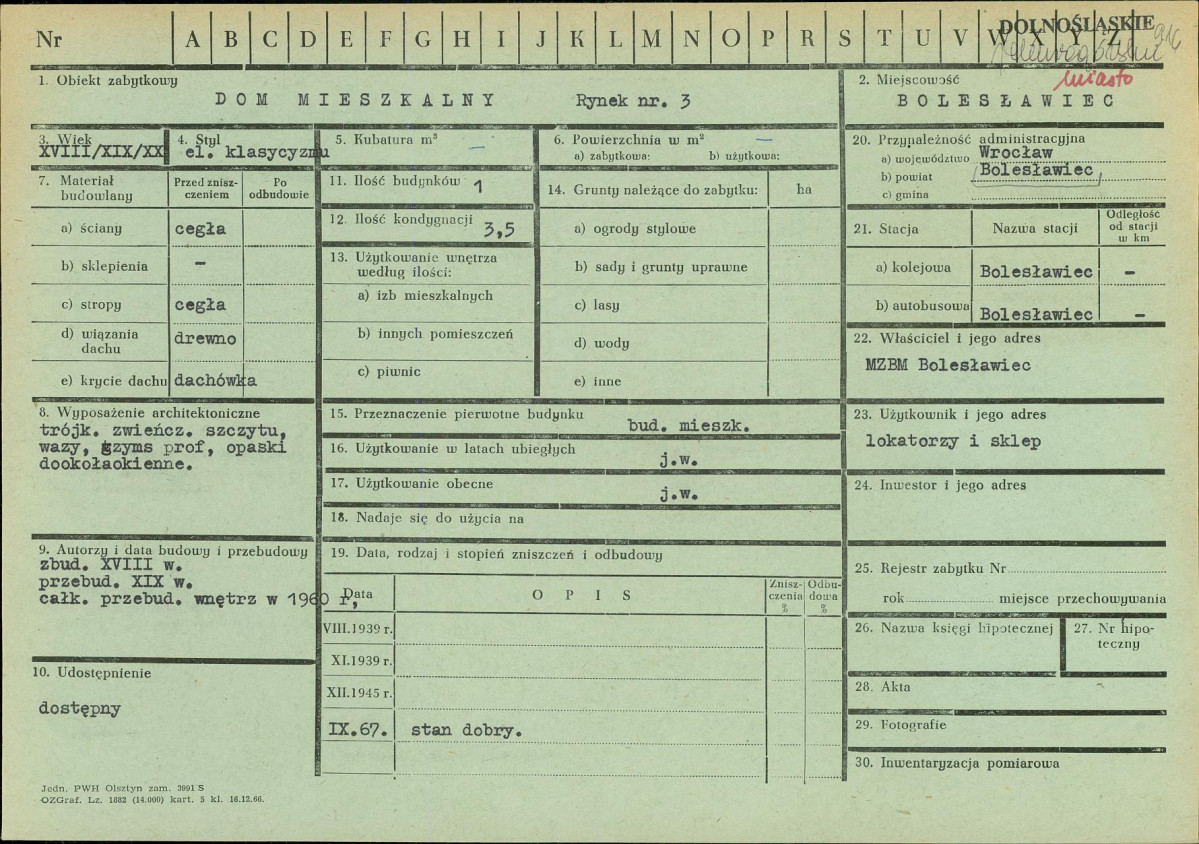 Nr A B C D E F G H I J K L M N O P R S T U V W X Y Z
DOLNOŚLĄSKIE
916
miasto
1. Obiekt zabytkowy
DOM MIESZKALNY Rynek nr. 3
2. Miejscowość
BOLESŁAWIEC
3. Wiek
XVIII/XIX/XX
4. Styl
el. klasycyzmu
5. Kubatura m³ —
6. Powierzchnia w m² —
a) zabytkowa: b) użytkowa:
20. Przynależność administracyjna
a) województwo Wrocław
b) powiat Bolesławiec
c) gmina
7. Materiał budowlany
Przed zniszczeniem
Po odbudowie
a) ściany cegła
b) sklepienia –
c) stropy cegła
d) wiązania dachu drewno
e) krycie dachu dachówka
11. Ilość budynków 1
12. Ilość kondygnacji 3,5
13. Użytkowanie wnętrza
według ilości:
a) izb mieszkalnych
b) innych pomieszczeń
c) piwnic
14. Grunty należące do zabytku: ha
a) ogrody stylowe
b) sady i grunty uprawne
c) lasy
d) wody
e) inne
21. Stacja
Nazwa stacji
Odległość
od stacji
w km
a) kolejowa Bolesławiec –
b) autobusowa Bolesławiec –
22. Właściciel i jego adres
MZBM Bolesławiec
8. Wyposażenie architektoniczne
trójk. zwieńcz. szczytu,
wazy, gzyms prof, opaski
dookołaokienne.
15. Przeznaczenie pierwotne budynku
bud. mieszk.
16. Użytkowanie w latach ubiegłych
j.w.
17. Użytkowanie obecne
j.w.
18. Nadaje się do użycia na
23. Użytkownik i jego adres
lokatorzy i sklep
24. Inwestor i jego adres
9. Autorzy i data budowy i przebudowy
zbud. XVIII w.
przebud. XIX w.
całk. przebud. wnętrz w 1960 r,
19. Data, rodzaj i stopień zniszczeń i odbudowy
Data OPIS
Zniszczenia %
Odbudowa %
VIII.1939 r.
XI.1939 r.
XII.1945 r.
IX.67. stan dobry.
25. Rejestr zabytku Nr
rok miejsce przechowywania
26. Nazwa księgi hipotecznej
27. Nr hipoteczny
28. Akta
29. Fotografie
30. Inwentaryzacja pomiarowa
10. Udostępnienie
dostępny
Jedn. PWH Olsztyn zam. 3991 S
OZGraf. Lz. 1882 (14.000) kart. 5 kl. 16.12.66.